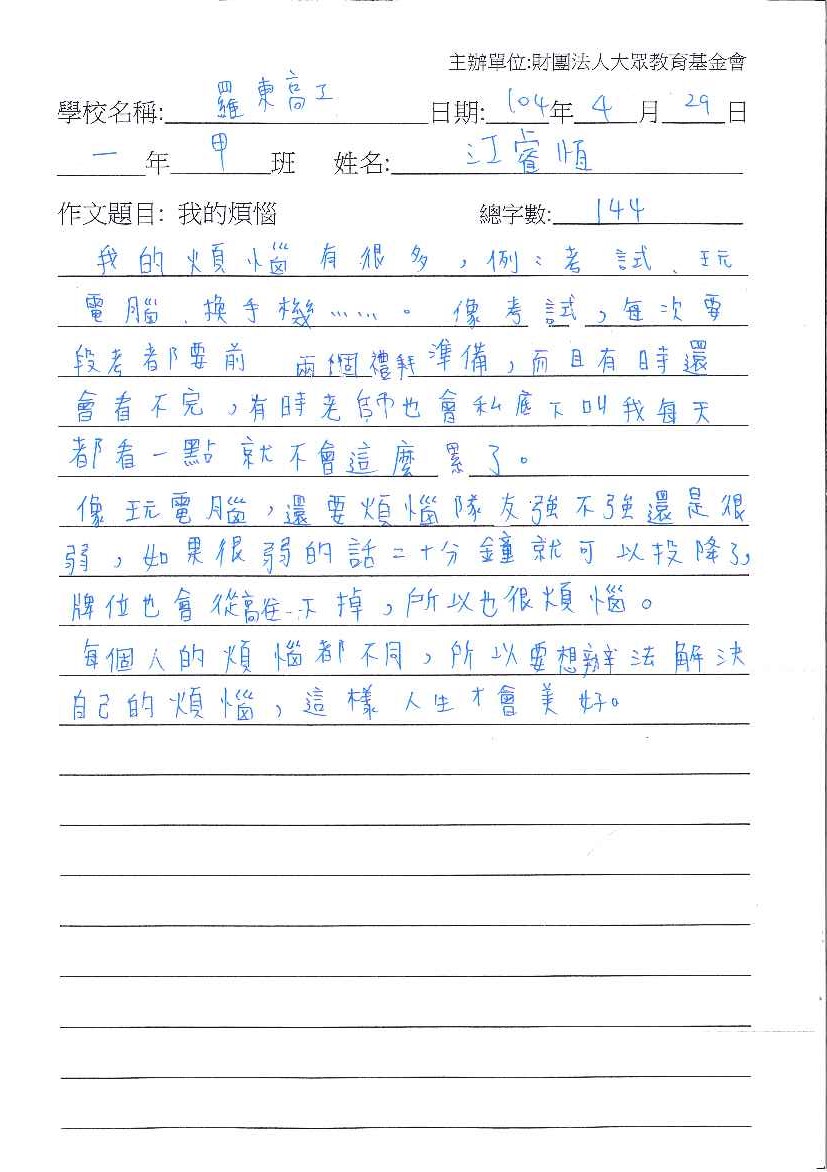 主辦單位:財團法人大眾教育基金會
學校名稱: 羅東高工 日期: 104年 4 月 29 日
一 年 甲 班 姓名: 江睿恒
作文題目: 我的煩惱 總字數: 144
我的煩惱有很多，例：考試、玩
電腦、換手機……。像考試，每次要
段考都要前兩個禮拜準備，而且有時還
會看不完，有時老師也會私底下叫我每天
都看一點就不會這麼累了。
像玩電腦，還要煩惱隊友強不強還是很
弱，如果很弱的話二十分鐘就可以投降了，
牌位也會從高往下掉，所以也很煩惱。
每個人的煩惱都不同，所以要想辦法解決
自己的煩惱，這樣人生才會美好。